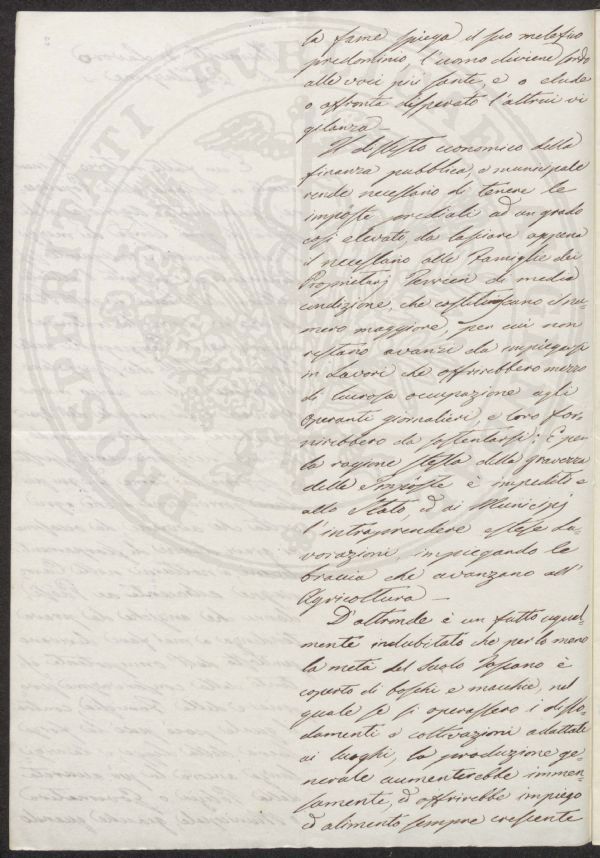 la fame spiega il suo malefico
predominio l'uomo diviene sordo
alle voci più sante, e o elude
o affronta disperato l'altrui vi
gilanza —
Il dissesto economico della
finanza pubblica, e municipale
rende necessario di tenere le
imposte prediali ad un grado
così elevato, da lasciare appena
il necessario alle Famiglie dei
Proprietarj Terrieri di media
condizione, che costituiscano il nu-
mero maggiore, per cui non
restano avanzi da impiegarsi
in Lavori che offrirebbero mezzo
di lucrosa occupazione agli
operanti giornalieri, e loro for-
nirebbero da sostentarsi: E per
la ragione stessa della gravezza
delle Imposte è impedito e
allo Stato, ed ai Municipj
l'intraprendere estese La-
vorazioni, impiegando le
braccia che avanzano all'
Agricoltura —
D'altronde è un fatto ugual-
mente indubitato che per lo meno
la metà del Suolo Toscano è
coperto di boschi e macchie, nel
quale se si operassero i disso-
damenti e coltivazioni adattate
ai luoghi, la produzione ge-
nerale aumenterebbe immen-
samente, ed offrirebbe impiego
ed alimento sempre crescente
PROSPERITATI PUBLICAE